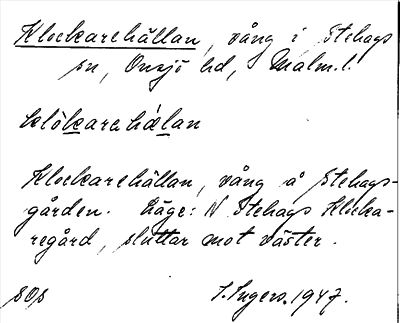 Klockarehällan, vång i Stehags
sn, Onsjö hd, Malm. l.
klökara hälan
Klockarehällan, vång å Stehags-
gården. Läge: N Stehags Klocka-
regård, sluttar mot väster.
sOs
S. Ingers. 1947.